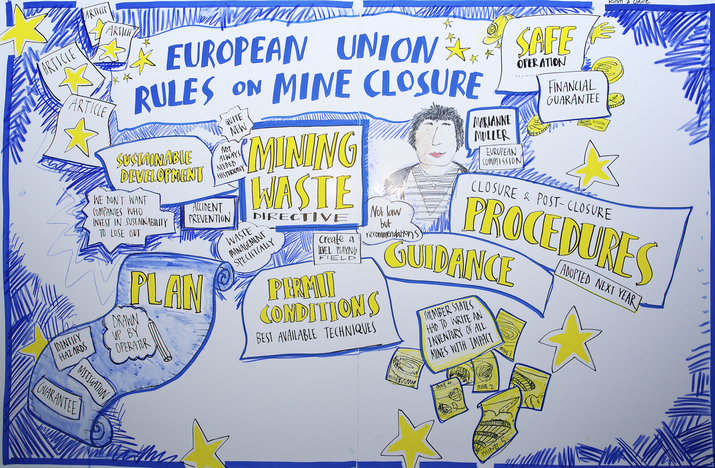 ARTICLE
ARTICLE
ARTICLE
ARTICLE
EUROPEAN UNION
RULES ON MINE CLOSURE
SAFE
OPERATION
FINANCIAL
GUARANTEE
MARIANNE
MULLER
EUROPEAN
COMMISSION
QUITE
NEW
NOT
ALWAYS
HISTORICALLY
SUSTAINABLE
DEVELOPMENT
MINING
WASTE
DIRECTIVE
WE DON'T WANT
COMPANIES WHO
INVEST IN SUSTAINABILITY
TO LOSE OUT
ACCIDENT
PREVENTION
WASTE
MANAGEMENT
SPECIFICALLY
Create a
LEVEL PLAYING
FIELD
Not law
but
recommendations
CLOSURE & POST-CLOSURE
PROCEDURES
ADOPTED NEXT YEAR
GUIDANCE
PLAN
DRAWN
UP BY
OPERATOR
IDENTIFY
HAZARDS
MITIGATION
GUARANTEE
PERMIT
CONDITIONS
BEST AVAILABLE TECHNIQUES
MEMBER STATES
HAD TO WRITE AN
INVENTORY OF ALL
MINES WITH IMPACT